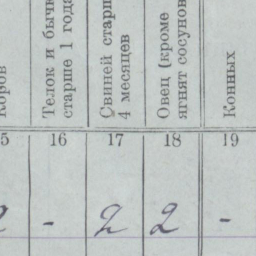 Коров
Телок и бычк
старше 1 года
Свиней старш
4 месяцев
Овец (кроме
ягнят сосунов
Конных
5 16 17 18 19
2 - 2 2 -